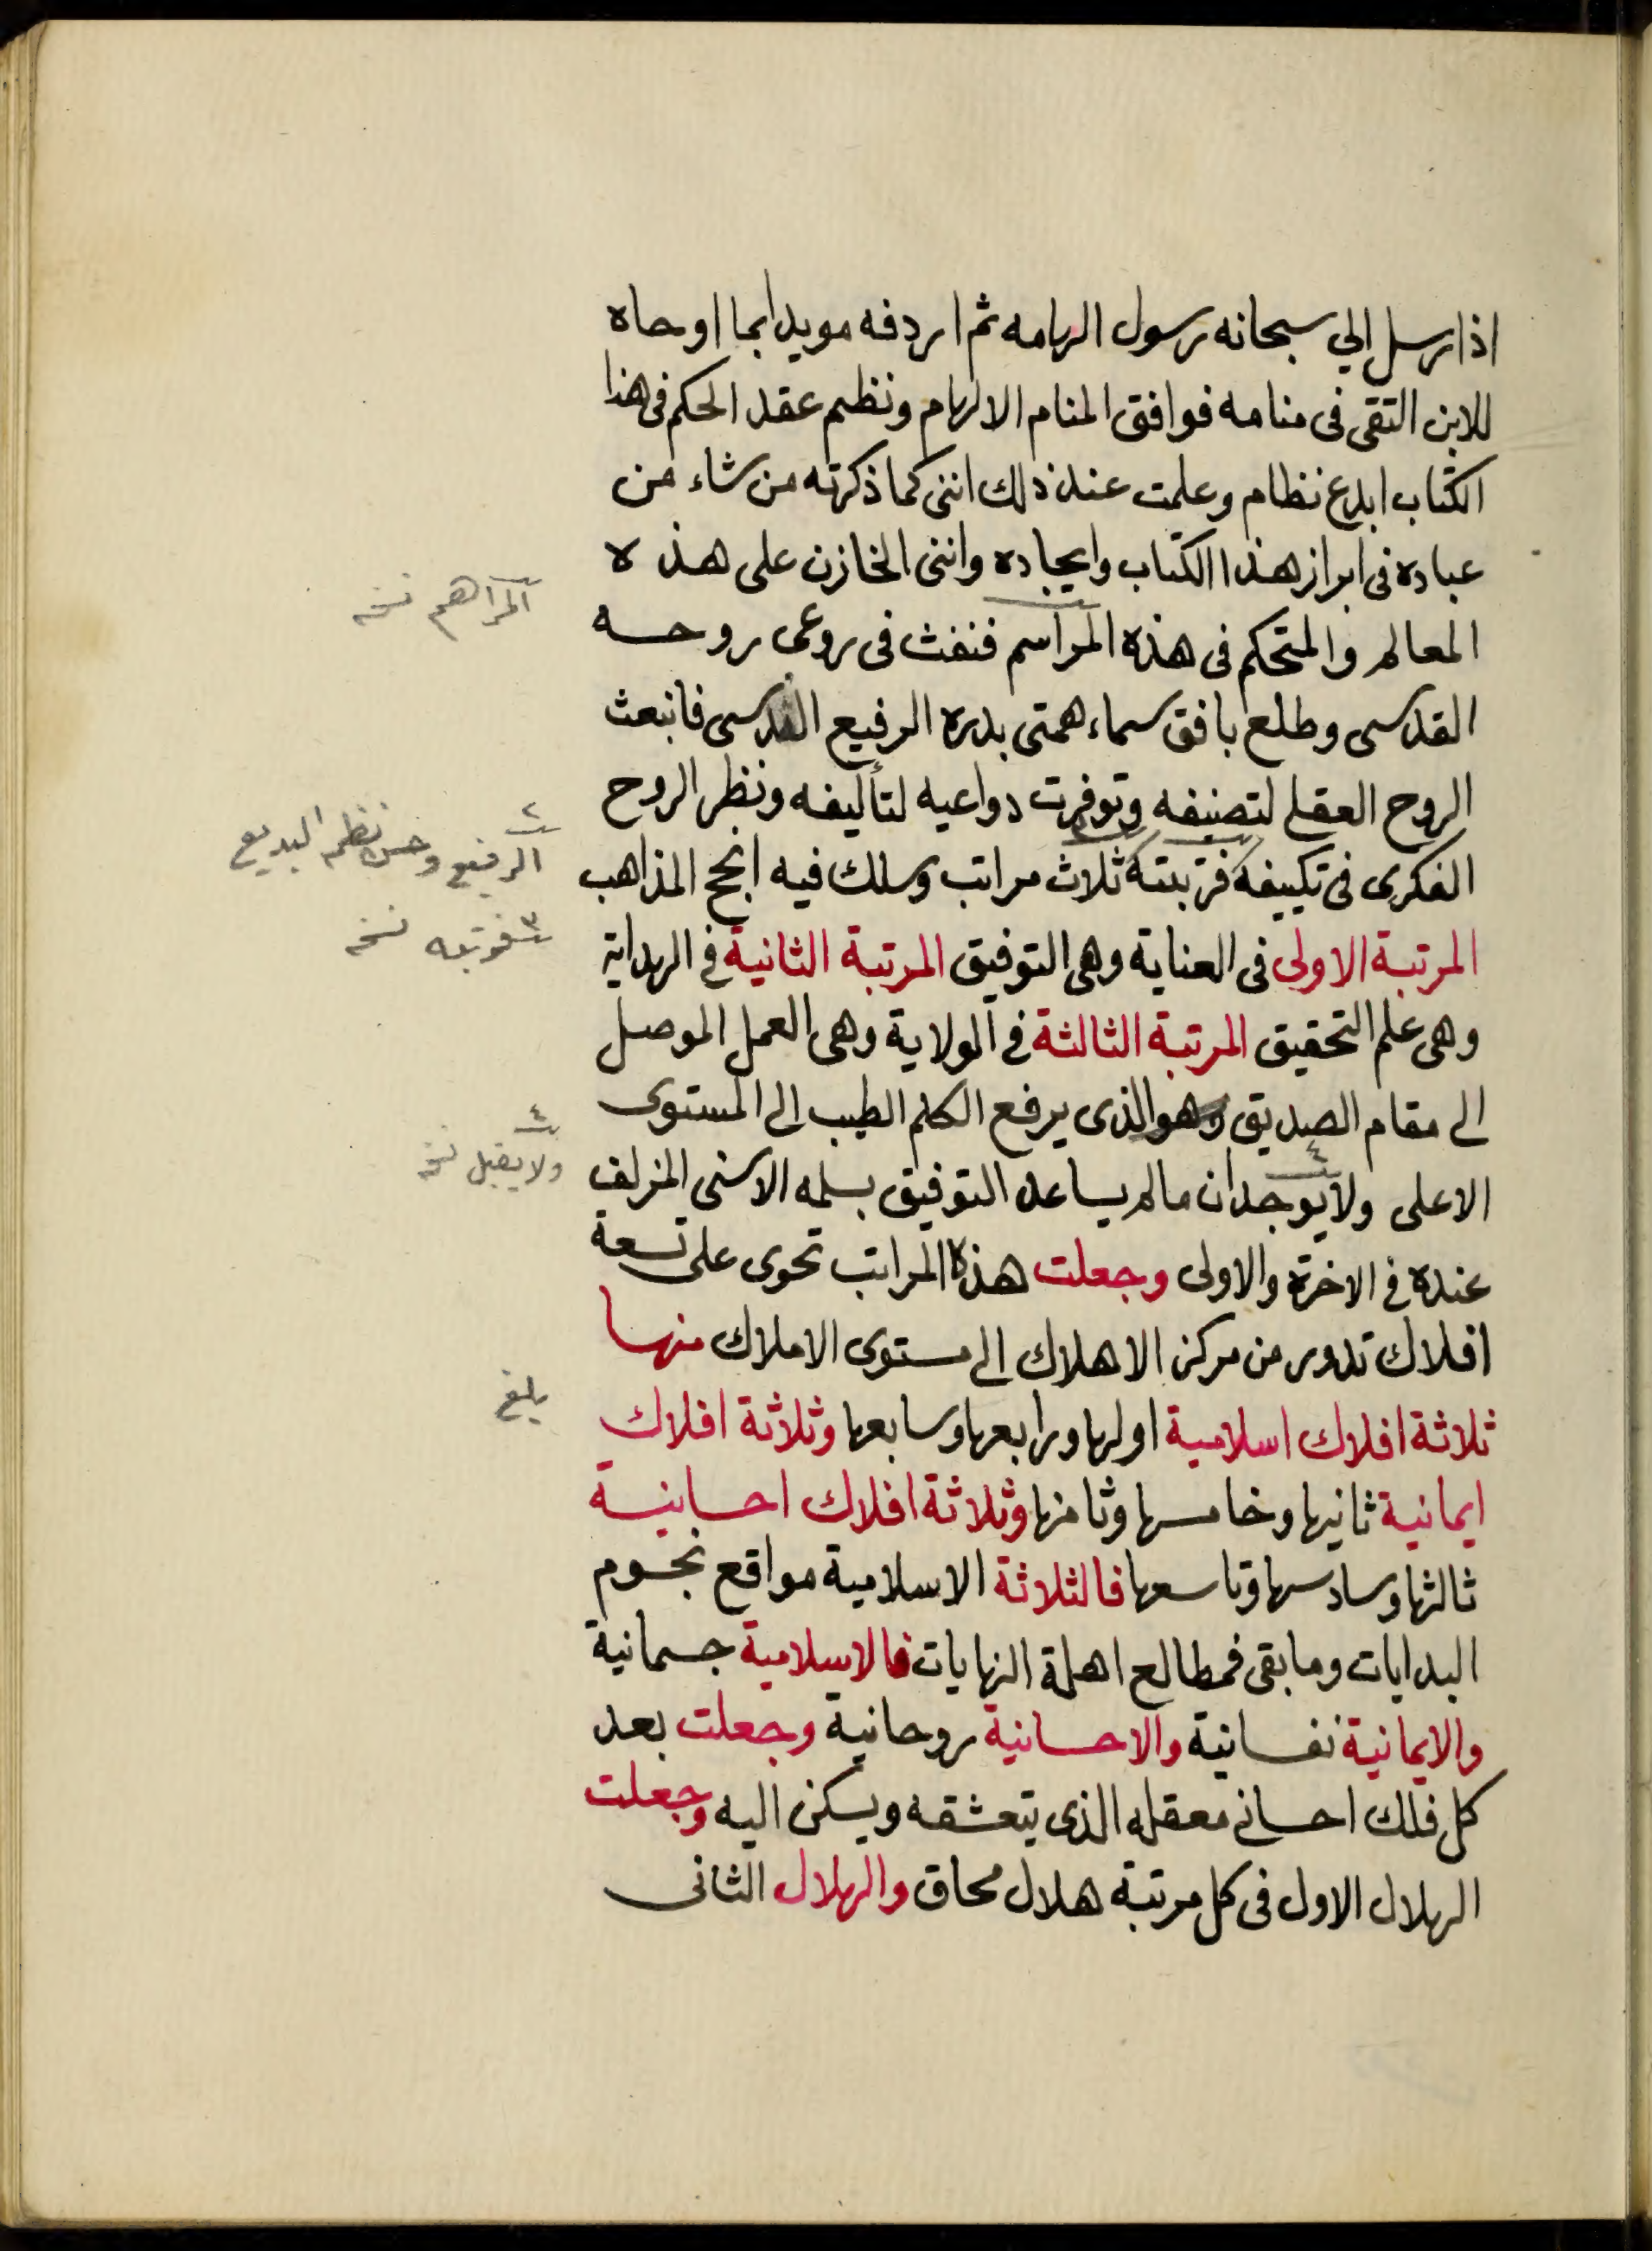 اذ ارسل الي سبحانه رسول الهامه ثم اردفه مويدا بما اوحاه
للابن التقى فى منامه فوافق المنام الالهام ونظم عقد الحكم فى هذا
الكتاب ابدع نظام وعلمت عند ذلك اننى كما ذكرته من شاء من
عباده فى ابراز هذا الكتاب وايجاده واننى الخازن على هذه
المعالم والمتحكم فى هذه المراسم فنفث فى روعى روحه
القدسى وطلع بافق سماء همتى بدره الرفيع القدسى فانبعث
الروح العقلى لتصنيفه وتوفرت دواعيه لتأليفه ونظر الروح
الفكرى فى تكييفه فرتبته ثلاث مراتب وسلك فيه انجح المذاهب
المرتبة الاولى فى العناية وهى التوفيق المرتبة الثانية فى الهداية
وهى علم التحقيق المرتبة الثالثة فى الولاية وهى العمل الموصل
الى مقام الصديق وهو الذى يرفع الكلم الطيب الى المستوى
الاعلى ولا يوجدان ما لم يساعد التوفيق بسلمه الاسنى المزلف
عنده فى الاخرة والاولى وجعلت هذه المراتب تحوى على تسعة
افلاك تدور من مركز الاهلاك الى مستوى الاملاك منها
ثلاثة افلاك اسلامية اولها ورابعها وسابعها وثلاثة افلاك
ايمانية ثانيها وخامسها وثامنها وثلاثة افلاك احسانية
ثالثها وسادسها وتاسعها فالثلاثة الاسلامية مواقع نجوم
البدايات وما بقى فمطالع اهلة النهايات فالاسلامية جسمانية
والايمانية نفسانية والاحسانية روحانية وجعلت بعد
كل فلك احسانى معقله الذى يتعشقه ويسكن اليه وجعلت
الهلال الاول فى كل مرتبة هلال محاق والهلال الثانى
المراهم نسخه
٢
الرفيع وحسن نظمه البديع
٣ فرتبه نسخه
٤
ولا يقبل نسخه
بلغ